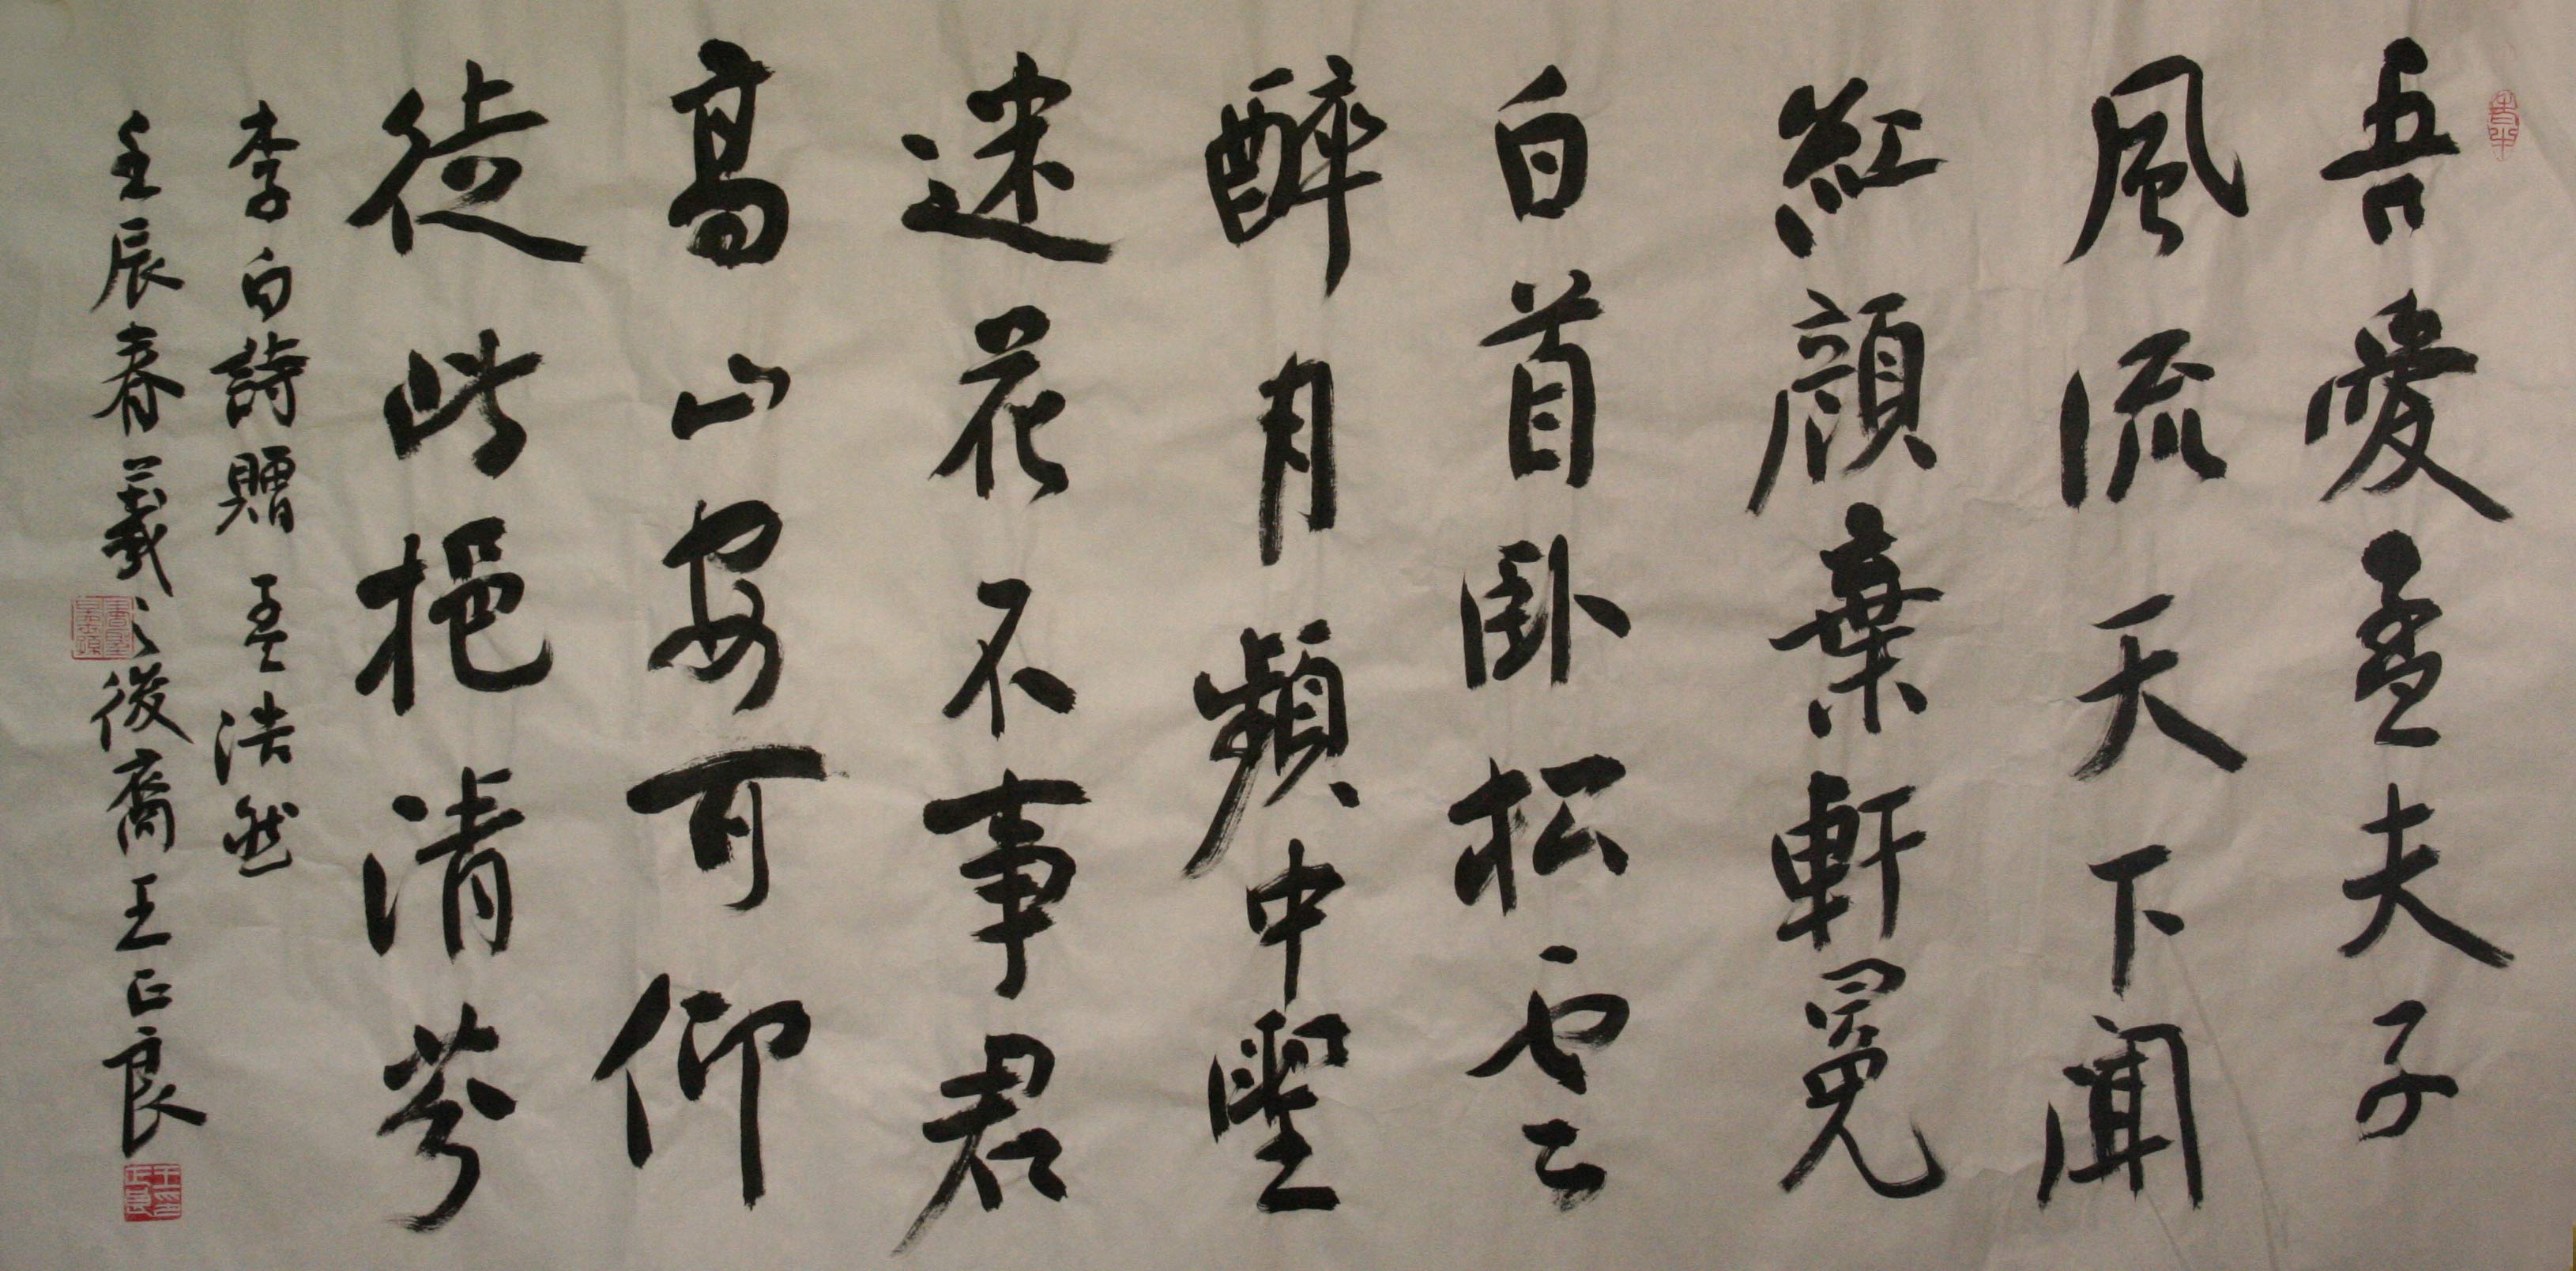 吾愛孟夫子
風流天下聞
紅顏棄軒冕
白首臥松雲
醉月頻中聖
迷花不事君
高山安可仰
徒此挹清芬
李白詩贈孟浩然
壬辰春羲之後裔王正良